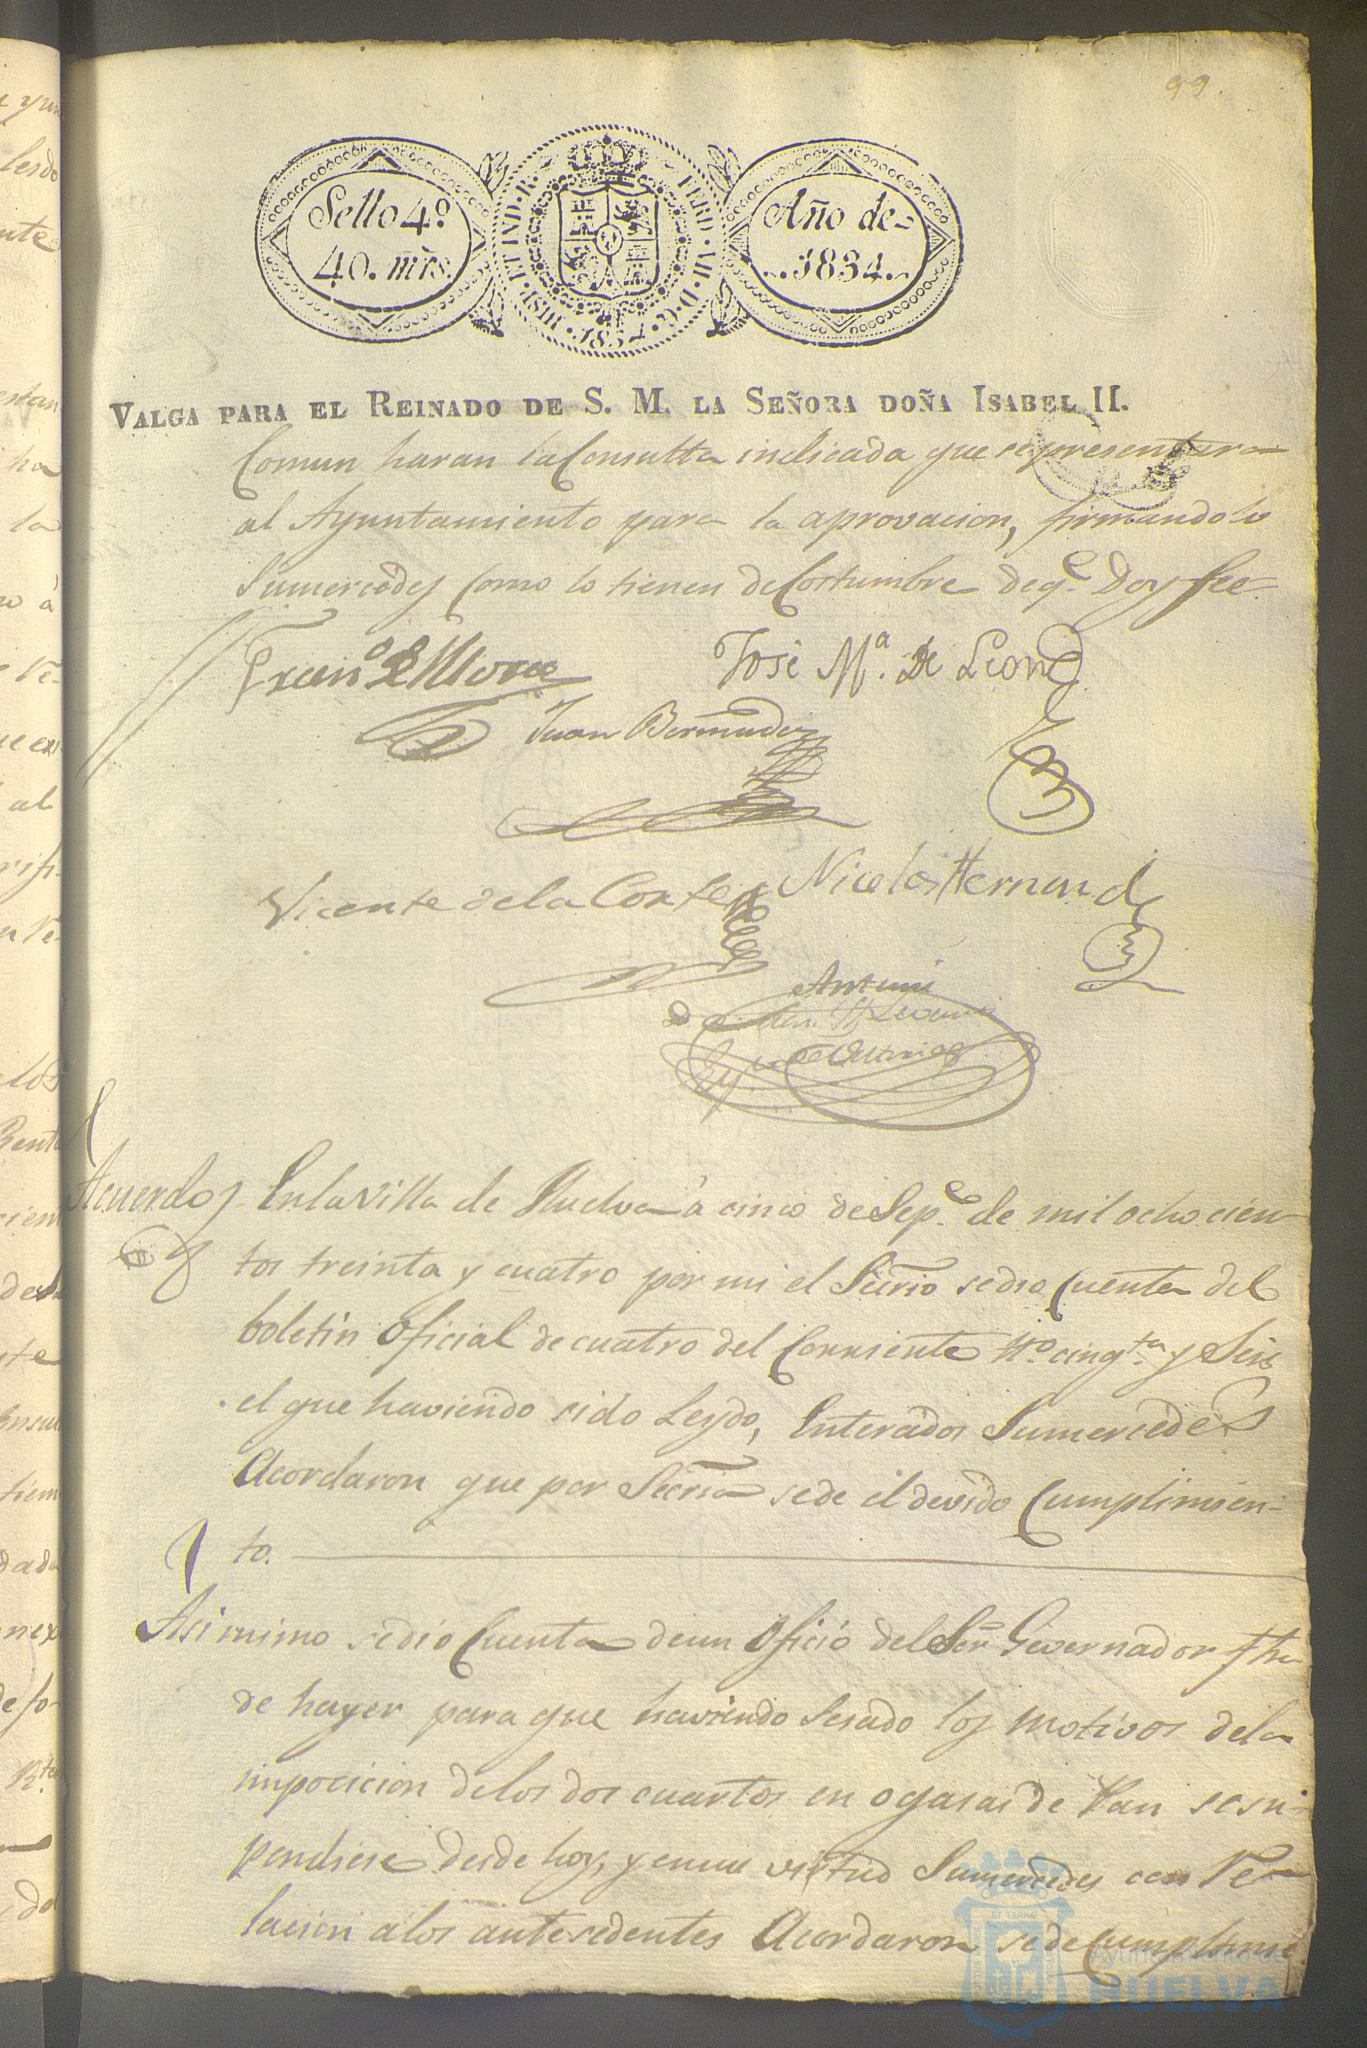 99.
Sello 4º
40. mrs.
HISP. ET IND. R. FERD. VII. D. G. 1834.
Año de
1834.
VALGA PARA EL REINADO DE S. M. LA SEÑORA DOÑA ISABEL II.
Comun haran la Consulta indicada que se presentara
al Ayuntamiento para la aprovacion, firmandolo
Sumercedes como lo tienen de Costumbre de qe. Doy fee
José Mª. De Leon
Juan Bermudez
Vicente de la Corte
Nicolas Hernand
Antemi
Acuerdo En la Villa de Huelva à cinco de Sepe. de mil ochocien
tos treinta y cuatro por mi el Secrio se dio Cuenta del
boletin Oficial de cuatro del Corriente Nº. cinqta. y Seis
el que haviendo sido Leydo, Enterados Sumercedes
Acordaron que por Secria se de el devido Cumplimien-
to.
Asi mimo se dio Cuenta de un Oficio del Sor. Governador fha
de hayer para que haviendo Sesado los motivos de la
imposicion de los dos cuartos en ogasas de Pan se sus-
pendiese desde hoy, y en su virtud Sumercedes con re-
lacion a los antesedentes Acordaron se de Cumplimie
Ayuntamiento de
HUELVA